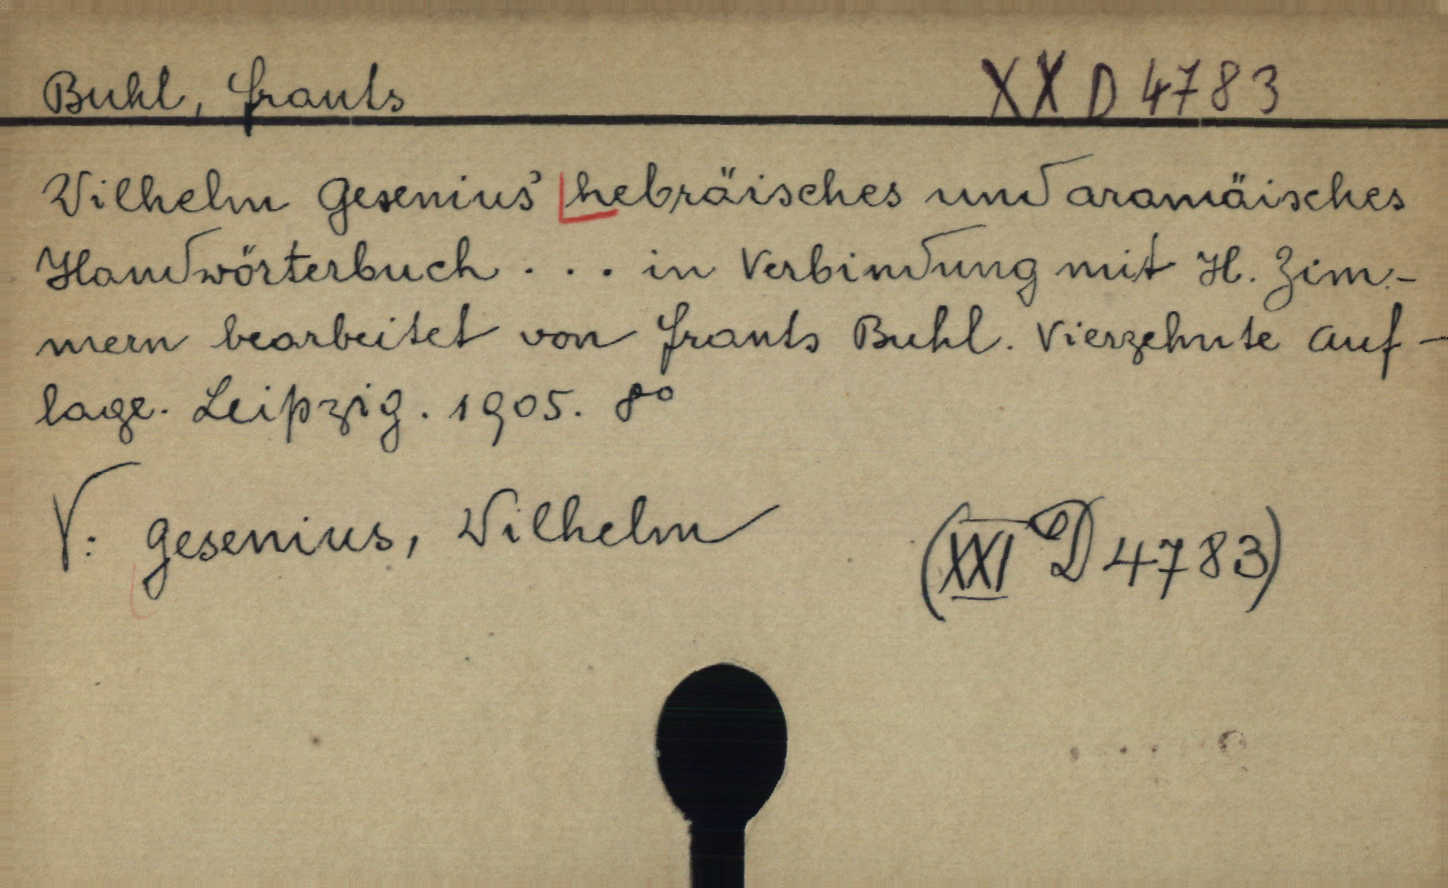 Buhl, Frants XX D 4783
Wilhelm Gesenius' hebräisches und aramäisches
Handwörterbuch . . . in Verbindung mit H. Zim-
mern bearbeitet von Frants Buhl. Vierzehnte Auf-
lage. Leipzig. 1905. 8°
V: Gesenius, Wilhelm (XXI D 4783)